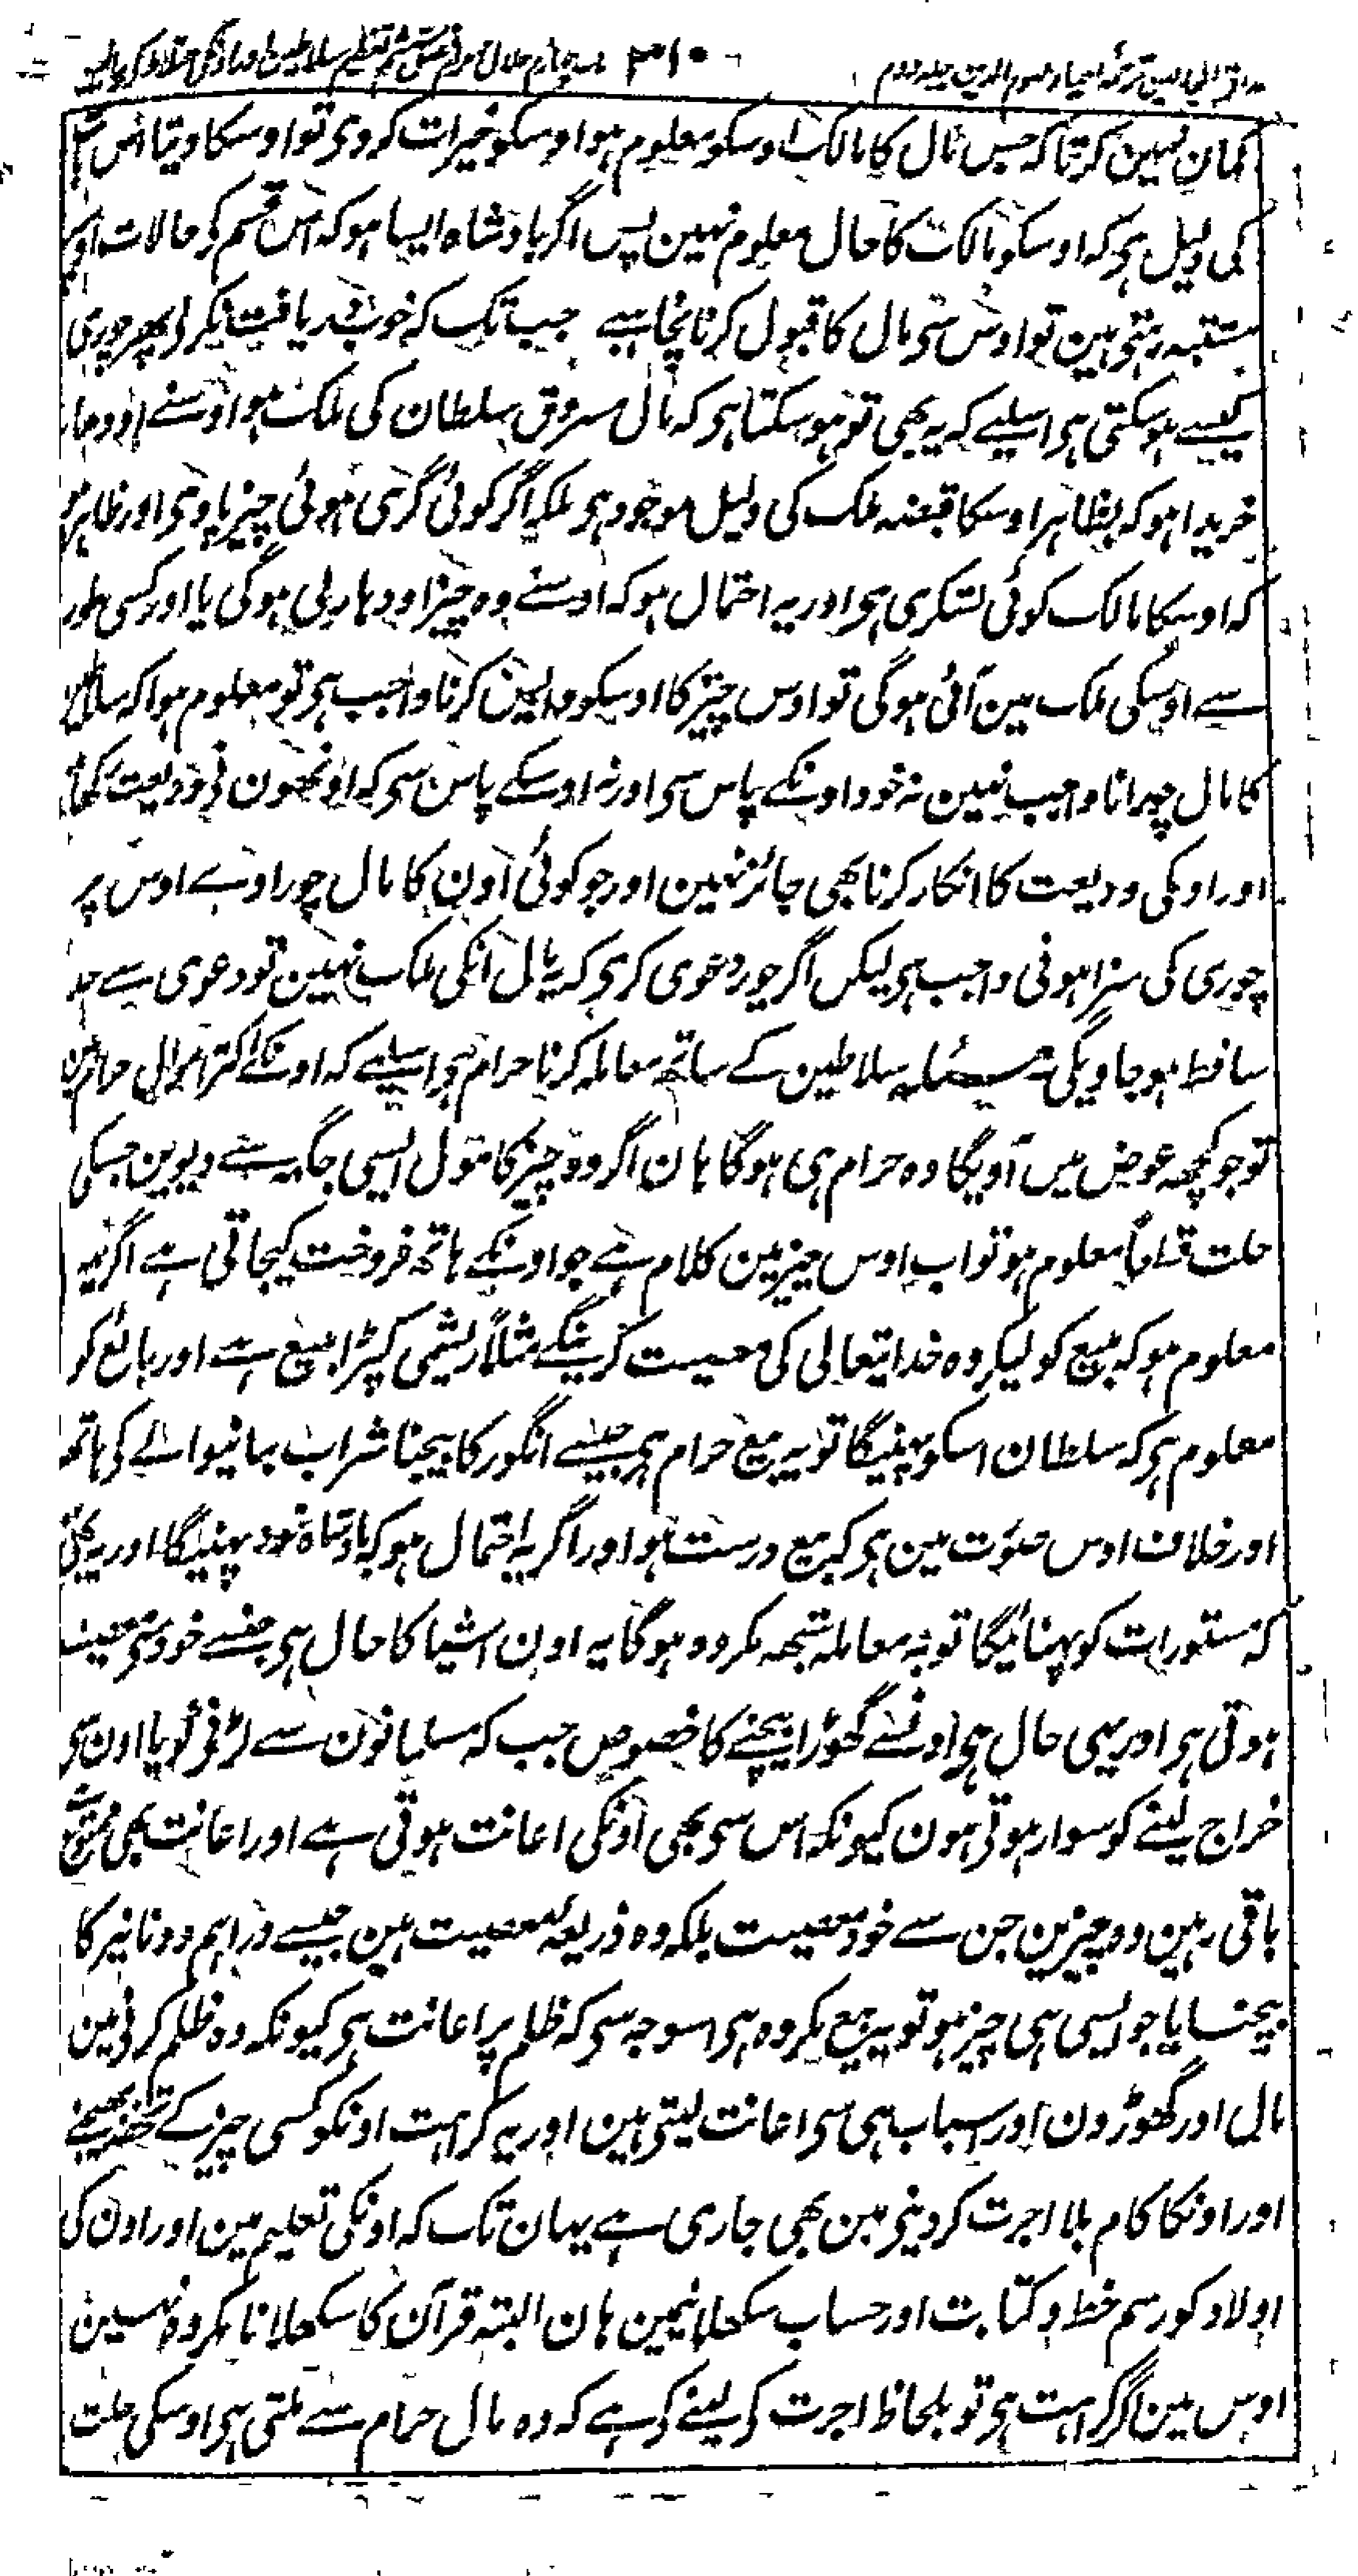 مذاق العارفین ترجمہ احیاء علوم الدین جلد دوم ۳۱۰
گمان نہین کرتا کہ جس مال کا مالک اوسکو معلوم ہو اوسکو خیرات کر دی تو اوسکا دینا اس
کی دلیل ہی کہ اوسکو مالک کا حال معلوم نہین پس اگر بادشاہ ایسا ہو کہ اس قسم کے حالات اوسپر
مشتبہ رہتی ہین تو اوس سی مال کا قبول کرنا نچاہیے جب تک کہ خوب دریافت نکر لی پھر چوری
کیسے ہو سکتی ہی اسلیے کہ یہ بھی تو ہو سکتا ہی کہ مال مسروق سلطان کی ملک ہو اوسنے اودھار
خریدا ہو کہ بظاہر اوسکا قبضہ ملک کی دلیل موجود ہی بلکہ اگر کوئی گری ہوئی چیز پاوی اور ظاہر ہو
کہ اوسکا مالک کوئی لشکری ہی اور یہ احتمال ہو کہ اوسنے وہ چیز اودہار لی ہو گی یا اور کسی طور
سے اوسکی ملک مین آئی ہو گی تو اوس چیز کا اوسکو واپس کرنا واجب ہی تو معلوم ہوا کہ سلاطین
کا مال چورانا واجب نہین نہ خود اونکے پاس سی اور نہ اوسکے پاس سی کہ اونھون نی ودیعت رکھا
اور اونکی ودیعت کا انکار کرنا بھی جائز نہین اور جو کوئی اون کا مال چوراوے اوس پر
چوری کی سزا ہونی واجب ہی لیکن اگر چور دعوی کری کہ یہ مال انکی ملک نہین تو دعوی سے حد
ساقط ہو جاویگی مسئلہ سلاطین کے ساتھ معاملہ کرنا حرام ہی اسلیے کہ اونکے اکثر اموال حرام ہین
تو جو کچھ عوض میں آویگا وہ حرام ہی ہو گا ہان اگر وہ چیز کا مول ایسی جگہ سے دیوین جسکی
حلت قطعاً معلوم ہو تو اب اوس چیز مین کلام ہے جو اونکے ہاتھ فروخت کیجاتی ہے اگر یہ
معلوم ہو کہ مبیع کو لیکر وہ خدایتعالی کی معصیت کرینگے مثلاً ریشمی کپڑا مبیع ہے اور بائع کو
معلوم ہی کہ سلطان اسکو پہنیگا تو یہ بیع حرام ہی جیسے انگور کا بیچنا شراب بنانیوالے کی ہاتھ
اور خلاف اوس صورت مین ہی کہ بیع درست ہو اور اگر یہ احتمال ہو کہ بادشاہ خود پہنیگا اور یہ بھی
کہ مستورات کو پہنائیگا تو یہ معاملہ شبہہ مکروہ ہو گا یہ اون اشیا کا حال ہی جنسے خود ہی معصیت
ہوتی ہی اور یہی حال ہی اونسے گھوڑا بیچنے کا خصوص جب کہ مسلمانون سے لڑنی کو یا اون سی
خراج لینے کو سوار ہوتی ہون کیونکہ اس سی بھی اونکی اعانت ہوتی ہے اور اعانت بھی ممنوع
باقی رہین وہ چیزین جن سے خود معصیت بلکہ وہ ذریعہ معصیت ہین جیسے دراہم و دنانیر کا
بیچنا یا جو ایسی ہی چیز ہو تو یہ بیع مکروہ ہی اسوجہ سی کہ ظلم پر اعانت ہی کیونکہ وہ ظلم کرنی مین
مال اور گھوڑون اور اسباب ہی سی اعانت لیتی ہین اور یہ کراہت اونکو کسی چیز کے تحفہ بھیجنے
اور اونکا کام بلا اجرت کر دینی مین بھی جاری ہے یہان تک کہ اونکی تعلیم مین اور اون کی
اولاد کو رسم خط و کتابت اور حساب سکھلانیمین ہان البتہ قرآن کا سکھلانا مکروہ نہین
اوس مین اگر کراہت ہی تو بلحاظ اجرت کی لینے کی ہے کہ وہ مال حرام سے ملتی ہی اوسکی حلت